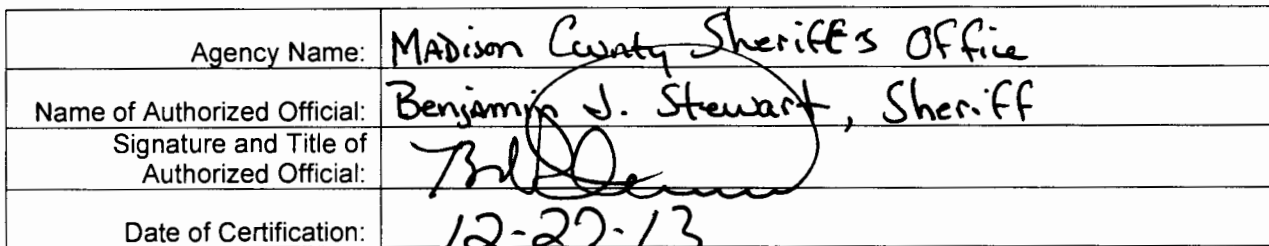 Agency Name: MADison County Sheriff's Office
Name of Authorized Official: Benjamin J. Stewart, Sheriff
Signature and Title of
Authorized Official:
Date of Certification: 12-27-13